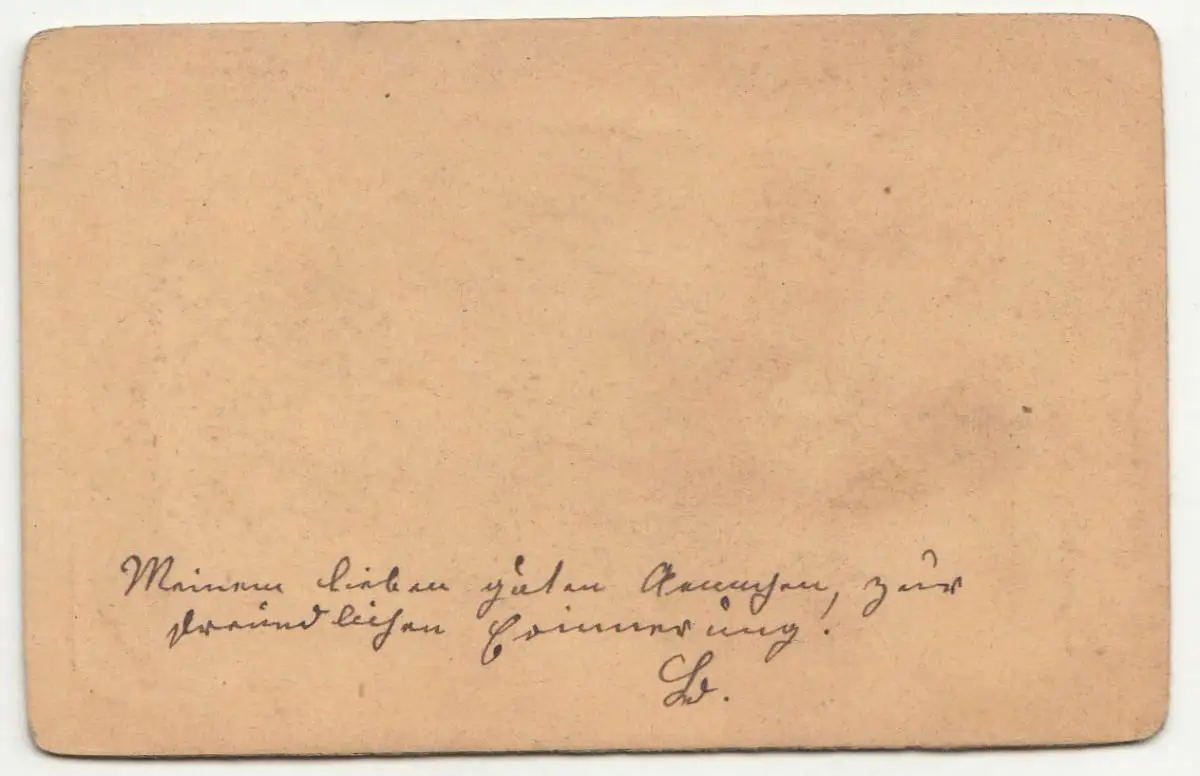 Meinem lieben guten Aennchen, zur
freundlichen Erinnerung!
Ld.